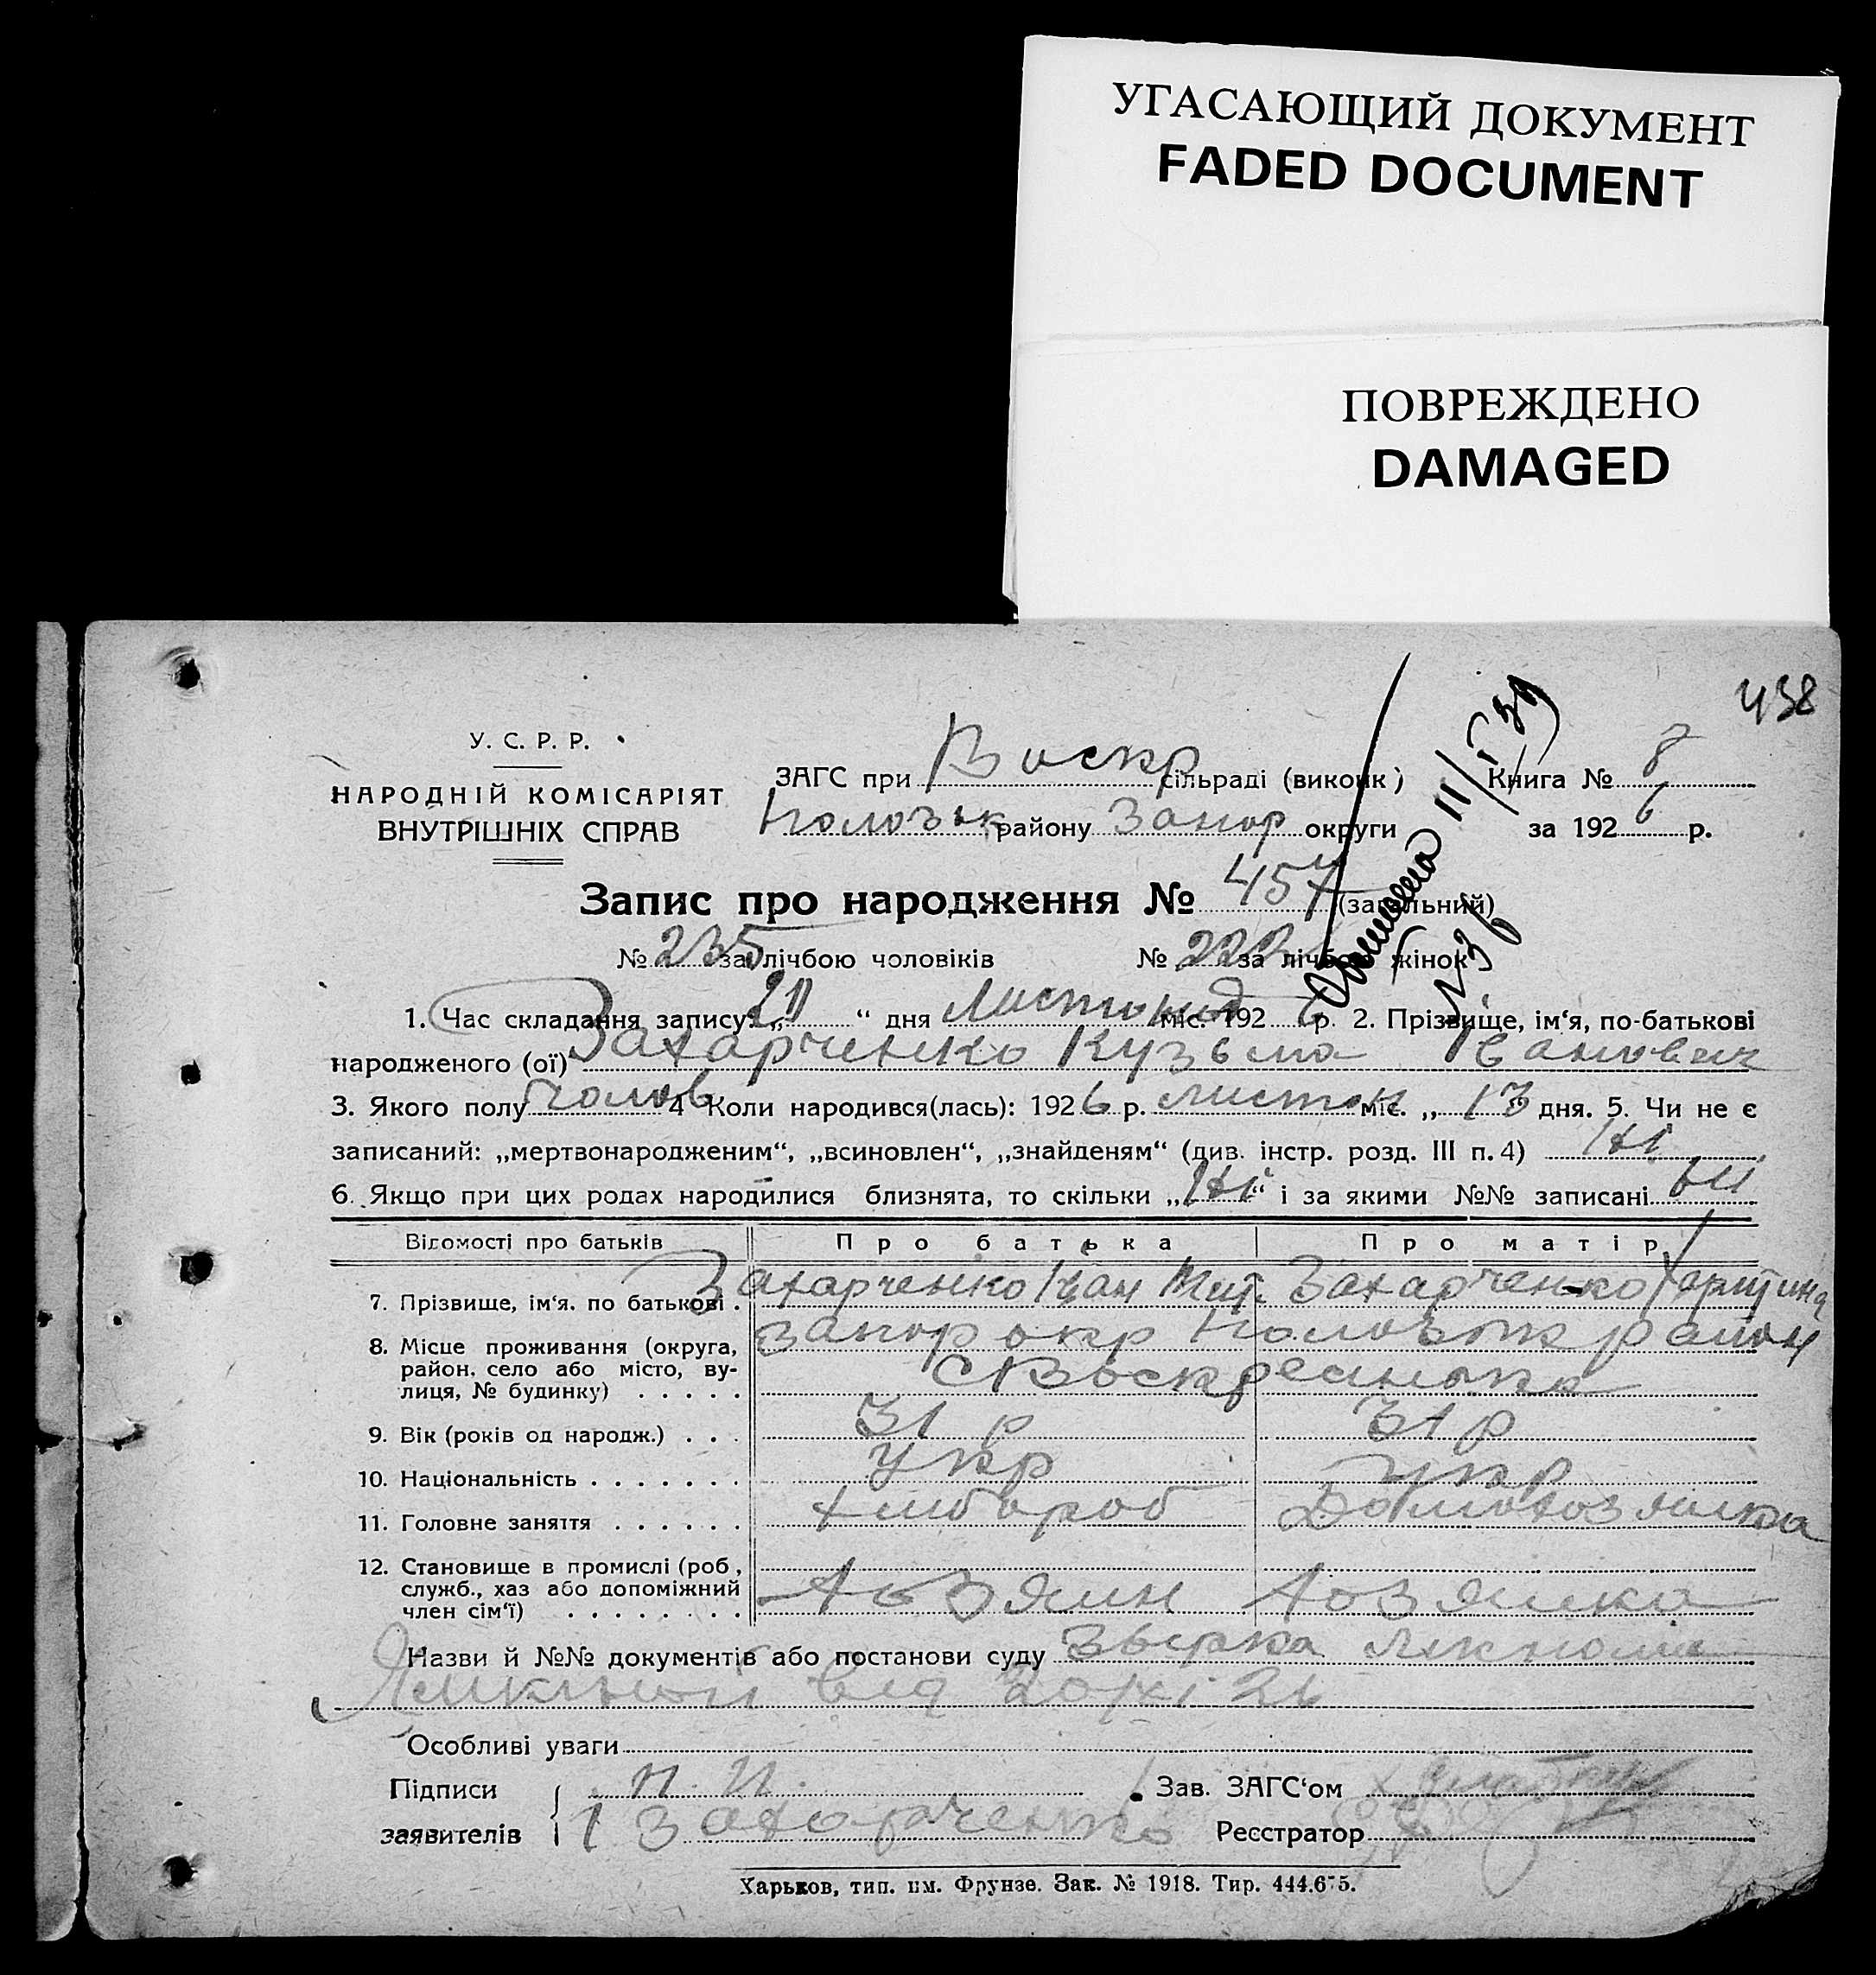 УГАСАЮЩИЙ ДОКУМЕНТ
FADED DOCUMENT
ПОВРЕЖДЕНО
DAMAGED
438
У. С. Р. Р.
НАРОДНІЙ КОМІСАРІЯТ
ВНУТРІШНІХ СПРАВ
ЗАГС при Воскр сільраді (виконк) Книга № 8
району Запор округи за 1926 р.
Запис про народження № 457 (загальний)
№ 235 за лічбою чоловіків № 222 за лічбою жінок
1. Час складання запису: „20“ дня Листопад міс. 1926 р. 2. Прізвище, ім‘я, по-батькові
народженого (ої) Захарченко Кузьма Іванович
3. Якого полу чолов 4 Коли народився(лась): 1926 р. листоп міс. „13 дня. 5. Чи не є
записаний: „мертвонародженим“, „всиновлен“, „знайденям“ (див. інстр. розд. III п. 4) Ні
6. Якщо при цих родах народилися близнята, то скільки „Ні“ і за якими №№ записані
Відомості про батьків Про батька Про матір
7. Прізвище, ім‘я. по батькові. Захарченко Іван Мит. Захарченко Харитина
8. Місце проживання (округа, район, село або місто, вулиця, № будинку) Запор окр район
с Воскресенька
9. Вік (років од народж.) 31 р 31 р
10. Національність Укр Укр
11. Головне заняття хлібороб Домохозяйка
12. Становище в промислі (роб, служб., хаз або допоміжний член сім‘ї) Хозяин Хозяйка
Назви й №№ документів або постанови суду
від 20/XI 26
Особливі уваги
Підписи Н. И. Зав. ЗАГС‘ом
заявителів Захарченко Реєстратор
Харьков, тип. им. Фрунзе. Зак. № 1918. Тир. 444.675.